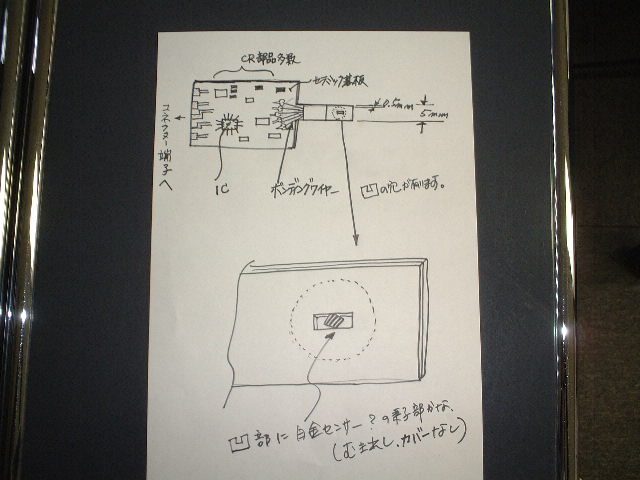 CR部品多数
セラミック基板
0.5mm
5mm
コネクター端子へ
IC
ボンディングワイヤー
凹の穴が有ります。
凹部に白金センサー?の素子部かな、
(むき出し、カバーなし)